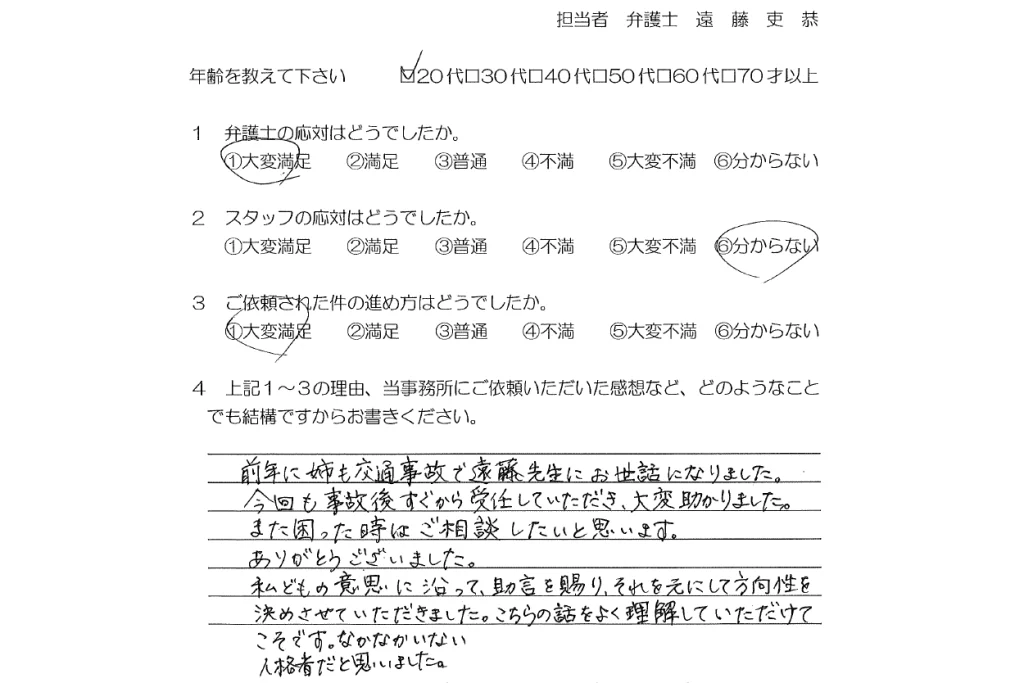 担当者　弁護士　遠　藤　吏　恭
年齢を教えて下さい　☑20代□30代□40代□50代□60代□70才以上
1　弁護士の応対はどうでしたか。
①大変満足　②満足　③普通　④不満　⑤大変不満　⑥分からない
2　スタッフの応対はどうでしたか。
①大変満足　②満足　③普通　④不満　⑤大変不満　⑥分からない
3　ご依頼された件の進め方はどうでしたか。
①大変満足　②満足　③普通　④不満　⑤大変不満　⑥分からない
4　上記1～3の理由、当事務所にご依頼いただいた感想など、どのようなこと
でも結構ですからお書きください。
前年に姉も交通事故で遠藤先生にお世話になりました。
今回も事故後すぐから受任していただき、大変助かりました。
また困った時はご相談したいと思います。
ありがとうございました。
私どもの意思に沿って、助言を賜り、それを元にして方向性を
決めさせていただきました。こちらの話をよく理解していただけて
こそです。なかなかいない
人格者だと思いました。